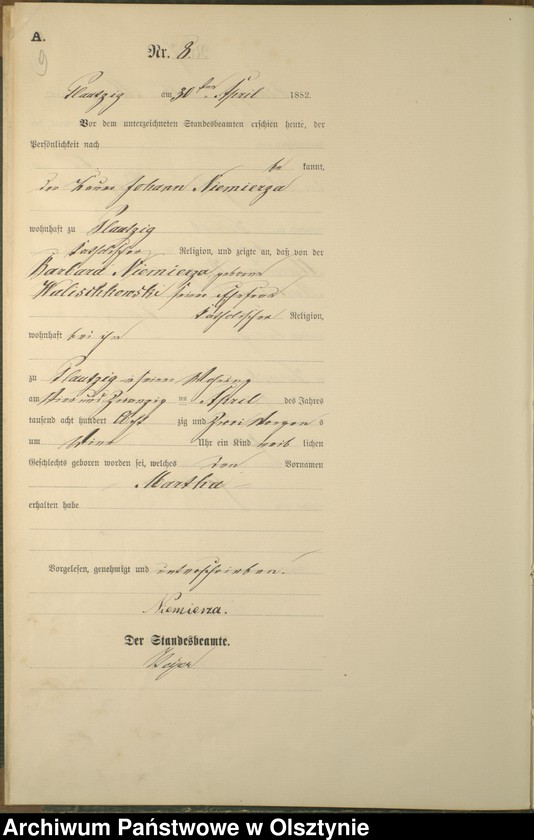 A.
9
Nr. 8.
Plautzig am 30ten April 1882.
Vor dem unterzeichneten Standesbeamten erschien heute, der
Persönlichkeit nach
be kannt,
der Johann Niemierza
wohnhaft zu Plautzig
katholischer Religion, und zeigte an, daß von der
Barbara Niemierza geborene
Walischkowski seiner Ehefrau
katholischer Religion,
wohnhaft bei ihm
zu Plautzig in seiner Wohnung
am und Zwanzig ten April des Jahres
tausend acht hundert Acht zig und Zwei Morgens
um Uhr ein Kind weib lichen
Geschlechts geboren worden sei, welches den Vornamen
Martha
erhalten habe
Vorgelesen, genehmigt und unterschrieben.
Niemierza.
Der Standesbeamte.
Archiwum Państwowe w Olsztynie